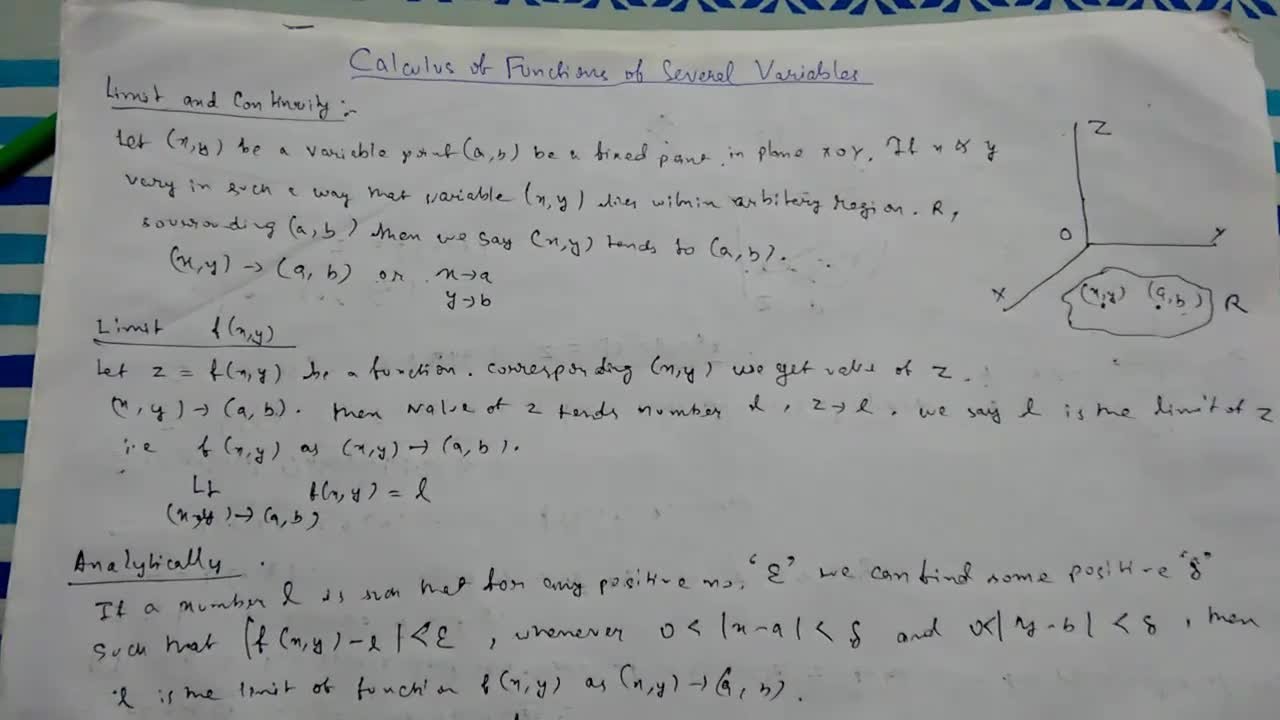 Calculus of Functions of Several Variables
Limit and Continuity :-
Let (x,y) be a variable point (a,b) be a fixed point in plane XOY. If x & y
vary in such a way that variable (x,y) lies within arbitery region. R,
sourrounding (a,b) then we say (x,y) tends to (a,b).
(x,y) → (a, b) or x→a
y→b
Z
O
Y
X
(x,y) (a,b) R
Limit f(x,y)
Let z = f(x,y) be a function. corresponding (x,y) we get value of z.
(x,y) → (a,b). then value of z tends number l, z→l, we say l is the limit of z
i.e f(x,y) as (x,y) → (a,b).
Lt f(x,y) = l
(x,y)→(a,b)
Analytically .
If a number l is such that for any positive no. "ε" we can find some positive "δ"
such that |f(x,y) - l| < ε, whenever 0 < |x-a| < δ and 0<|y-b| < δ, then
l is the limit of function f(x,y) as (x,y) → (a,b).